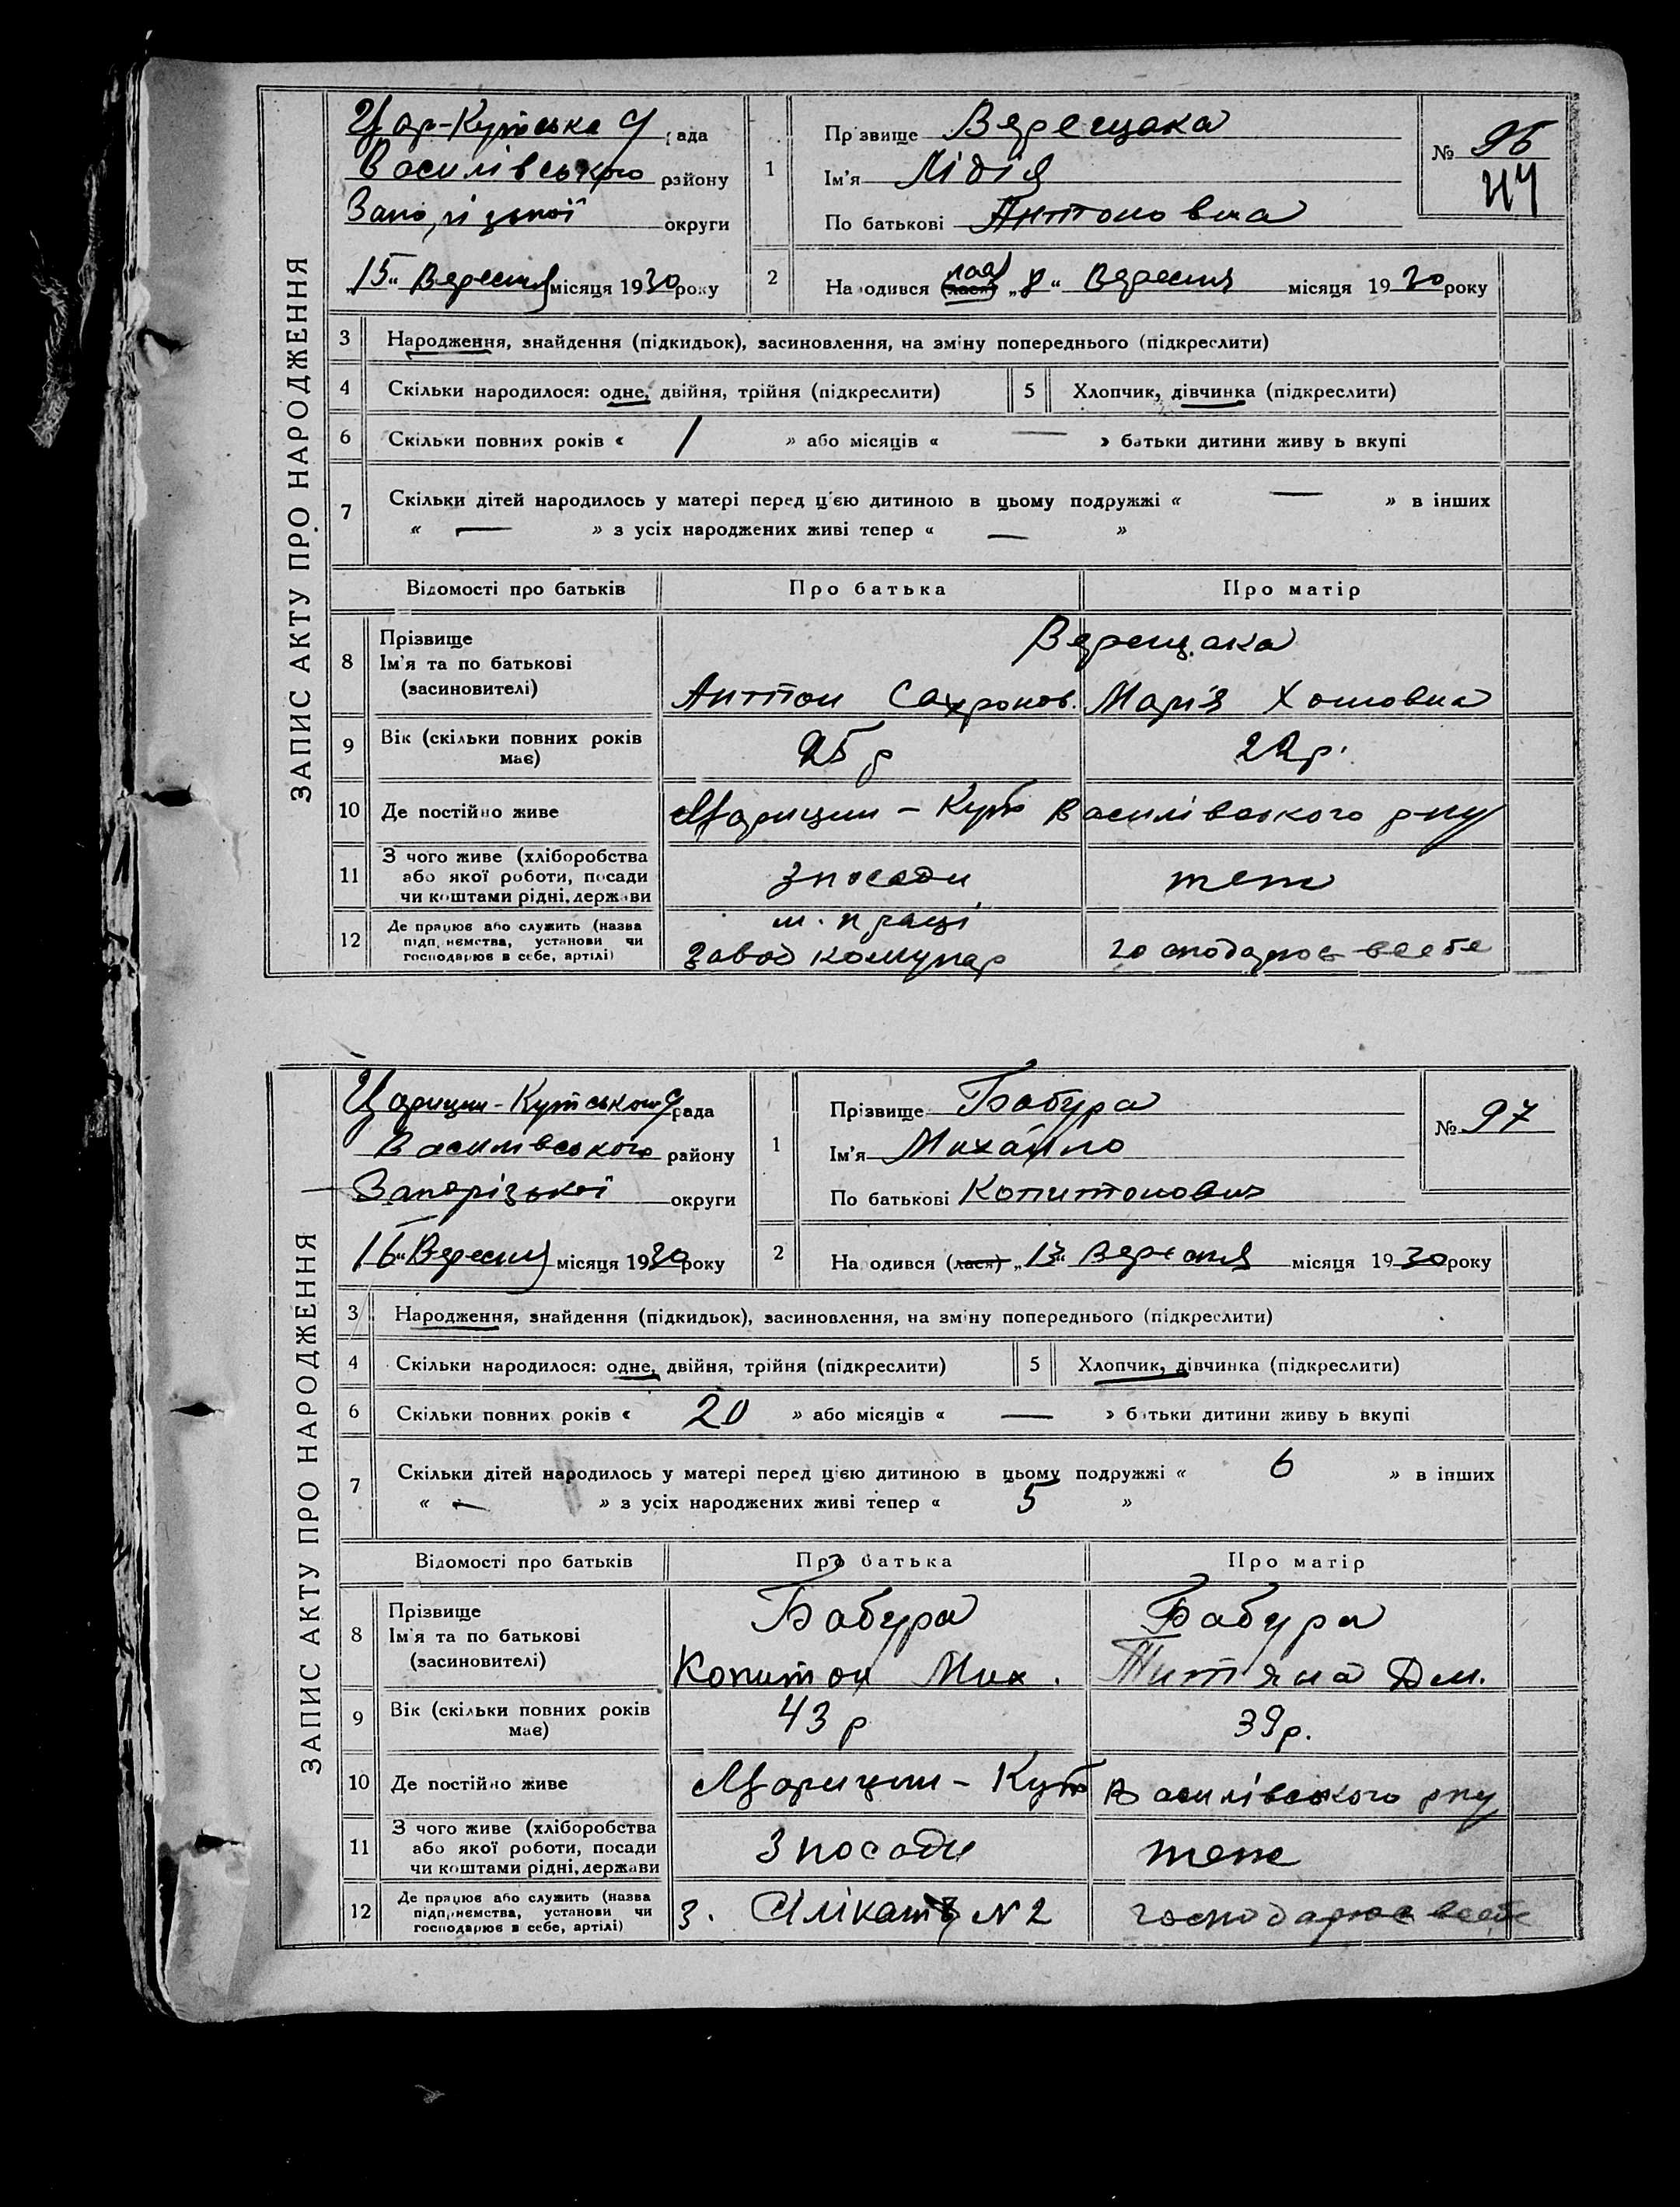 ЗАПИС АКТУ ПРО НАРОДЖЕННЯ
Цар-Кутська рада
Василівського району
Запорізької округи
„15“ Вересня місяця 1930 року
1
Прізвище Верещака
Ім'я Лідія
По батькові Антоновна
№ 96
2
Народився (лася) „8“ Вересня місяця 1930 року
3 Народження, знайдення (підкидьок), засиновлення, на зміну попереднього (підкреслити)
4 Скільки народилося: одне, двійня, трійня (підкреслити) 5 Хлопчик, дівчинка (підкреслити)
6 Скільки повних років « 1 » або місяців « — » батьки дитини живуть вкупі
7 Скільки дітей народилось у матері перед цією дитиною в цьому подружжі « — » в інших
« — » з усіх народжених живі тепер « — »
Відомості про батьків Про батька Про матір
8 Прізвище
Ім'я та по батькові
(засиновителі)
Верещака
Антон Сахронов. Марія Хомовна
9 Вік (скільки повних років
має)
25 р 22 р.
10 Де постійно живе Царицин-Кут Василівського р-ну
11 З чого живе (хліборобства
або якої роботи, посади
чи коштами рідні, держави
з посади теж
12 Де працює або служить (назва
підприємства, установи чи
господарює в себе, артілі)
м. праці
завод комунар господарює в себе
ЗАПИС АКТУ ПРО НАРОДЖЕННЯ
Царицин-Кутською рада
Василівського району
Запорізької округи
16„ Вересня місяця 1930 року
1
Прізвище Бабура
Ім'я Михайло
По батькові Копитонович
№ 97
2
Народився (лася) „13“ Вересня місяця 1930 року
3 Народження, знайдення (підкидьок), засиновлення, на зміну попереднього (підкреслити)
4 Скільки народилося: одне, двійня, трійня (підкреслити) 5 Хлопчик, дівчинка (підкреслити)
6 Скільки повних років « 20 » або місяців « — » батьки дитини живуть вкупі
7 Скільки дітей народилось у матері перед цією дитиною в цьому подружжі « 6 » в інших
« — » з усіх народжених живі тепер « 5 »
Відомості про батьків Про батька Про матір
8 Прізвище
Ім'я та по батькові
(засиновителі)
Бабура Бабура
Копитон Мих. Титяна Дм.
9 Вік (скільки повних років
має)
43 р 39 р.
10 Де постійно живе Царицин-Кут Василівського рну
11 З чого живе (хліборобства
або якої роботи, посади
чи коштами рідні, держави
З посади теж
12 Де працює або служить (назва
підприємства, установи чи
господарює в себе, артілі)
з. Сілікат N 2 господарює в себе